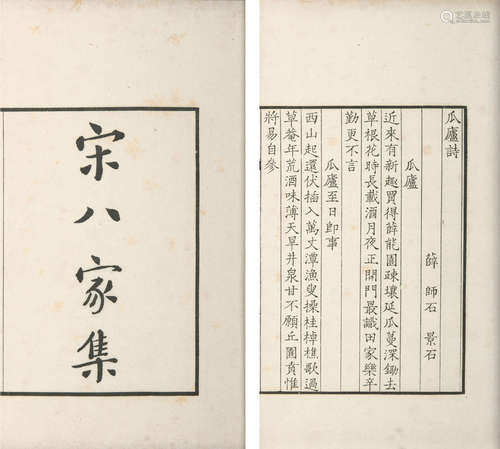 宋八家集
瓜廬詩
薛師石 景石
瓜廬
近來有新趣買得薛能園疎壤延瓜蔓深鋤去
草根花時長載酒月夜正開門最識田家樂辛
勤更不言
瓜廬至日即事
西山起還伏插入萬丈潭漁叟操桂棹樵歌過
草菴年荒酒味薄天旱井泉甘不願丘園賁惟
將易自參